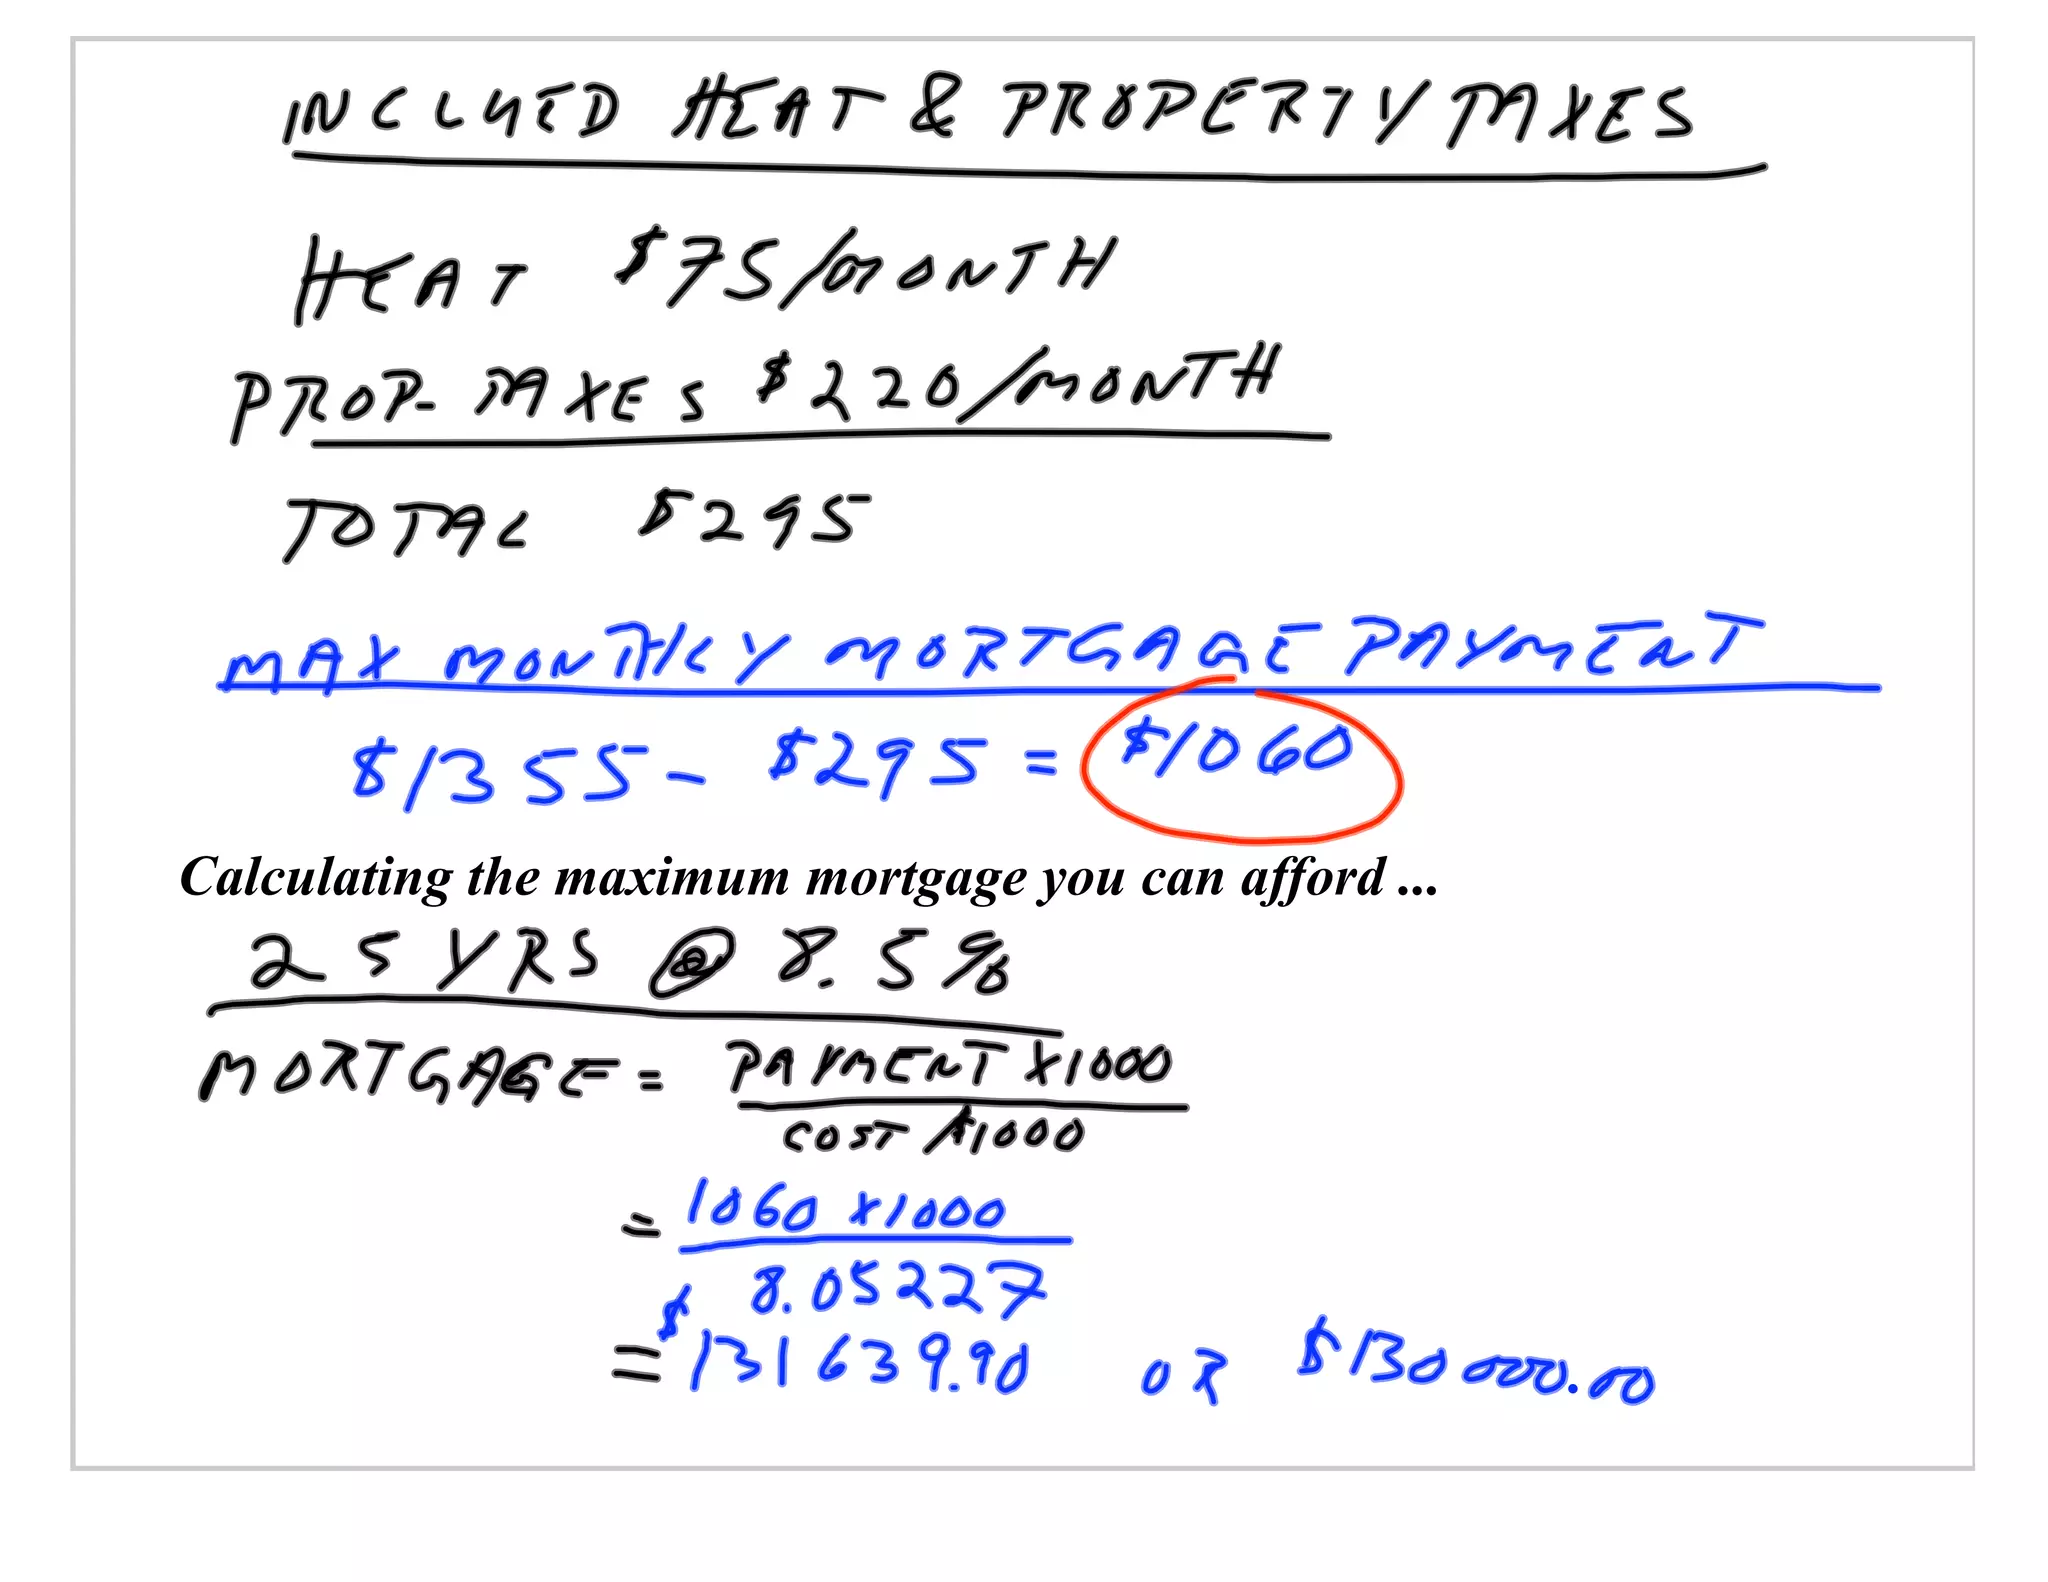 INCLUED HEAT & PROPERTY TAXES
HEAT $75/MONTH
PROP. TAXES $220/MONTH
TOTAL $295
MAX MONTHLY MORTGAGE PAYMENT
$1355 - $295 = $1060
Calculating the maximum mortgage you can afford ...
25 YRS @ 8.5%
MORTGAGE = PAYMENT X1000
COST /$1000
= 1060 X1000
8.05227
= $131639.90 OR $130000.00